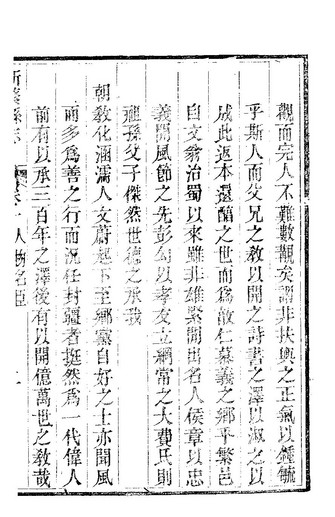 觀而完人不難數覯矣謂非扶輿之正氣以鍾毓
乎斯人而父兄之教以開之詩書之澤以淑之以
成此返本還醕之世而為敵仁慕義之鄉乎繁邑
自文翁治蜀以來雖非雄緊間出名人侯章以忠
義開風節之先彭勾以孝友立綱常之大費氏則
祖孫父子傑然世德之承我
朝教化涵濡人文蔚起下至鄉黨自好之士亦聞風
而多為善之行而況任封疆者挺然為一代偉人
前有以承三百年之澤後有以開億萬世之教哉
新繁縣志
卷 人物名臣